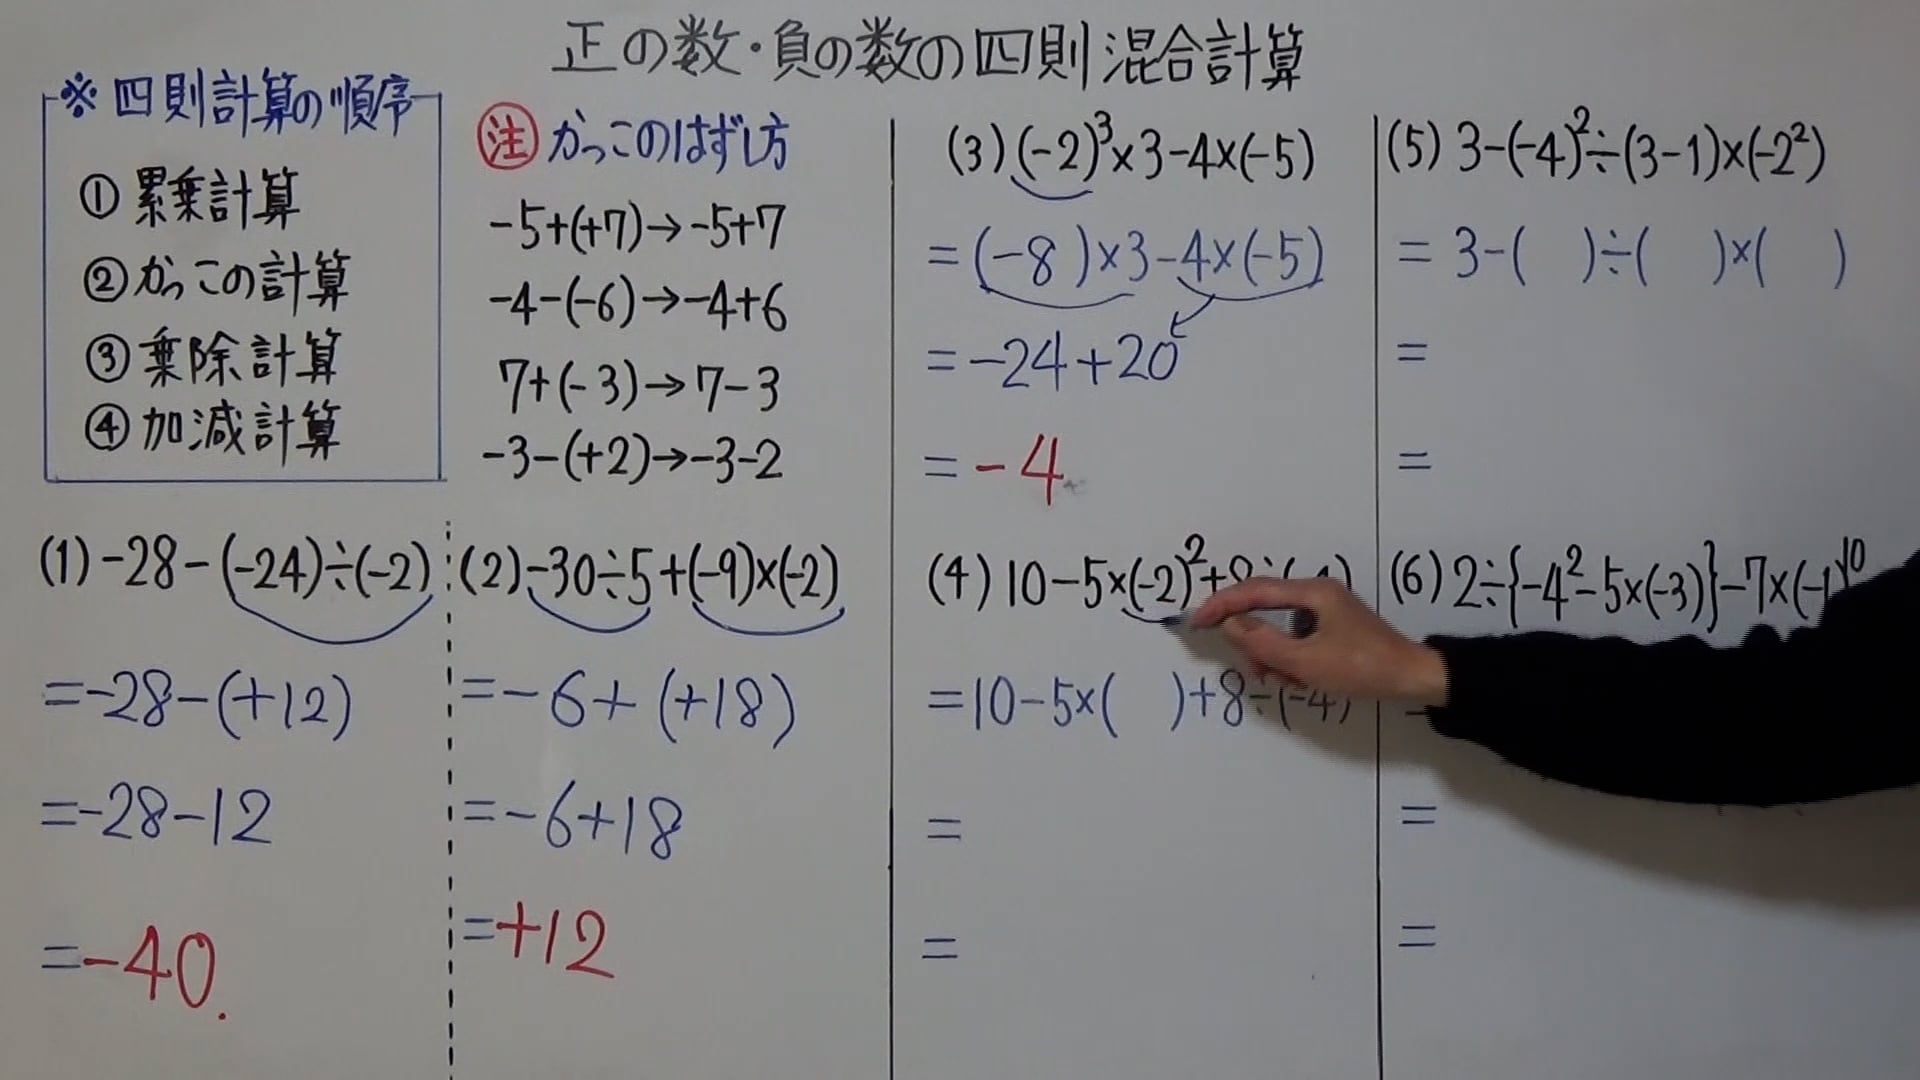 正の数・負の数の四則混合計算
※四則計算の順序
① 累乗計算
② かっこの計算
③ 乗除計算
④ 加減計算
注 かっこのはずし方
-5+(+7)→-5+7
-4-(-6)→-4+6
7+(-3)→7-3
-3-(+2)→-3-2
(1) -28-(-24)÷(-2)
=-28-(+12)
=-28-12
=-40.
(2) -30÷5+(-9)×(-2)
=-6+(+18)
=-6+18
=+12
(3) (-2)³×3-4×(-5)
=(-8)×3-4×(-5)
=-24+20
=-4
(4) 10-5×(-2)²+8÷(-4)
=10-5×( )+8÷(-4)
=
=
(5) 3-(-4)²÷(3-1)×(-2²)
=3-( )÷( )×( )
=
=
(6) 2÷{-4²-5×(-3)}-7×(-1)¹⁰
=
=
=